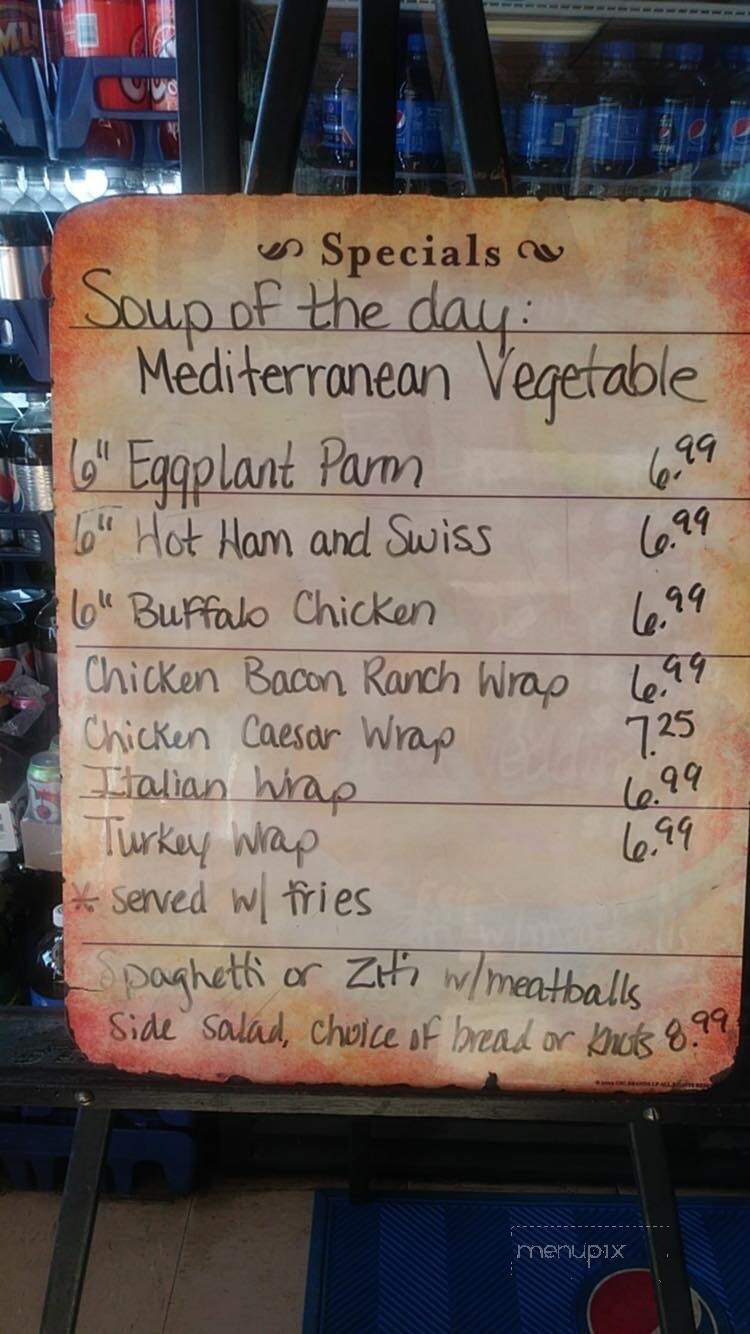 Specials
Soup of the day:
Mediterranean Vegetable
6" Eggplant Parm 6.99
6" Hot Ham and Swiss 6.99
6" Buffalo Chicken 6.99
Chicken Bacon Ranch Wrap 6.99
Chicken Caesar Wrap 7.25
Italian Wrap 6.99
Turkey Wrap 6.99
* served w/ fries
Spaghetti or Ziti w/meatballs
Side salad, choice of bread or knots 8.99
menupix